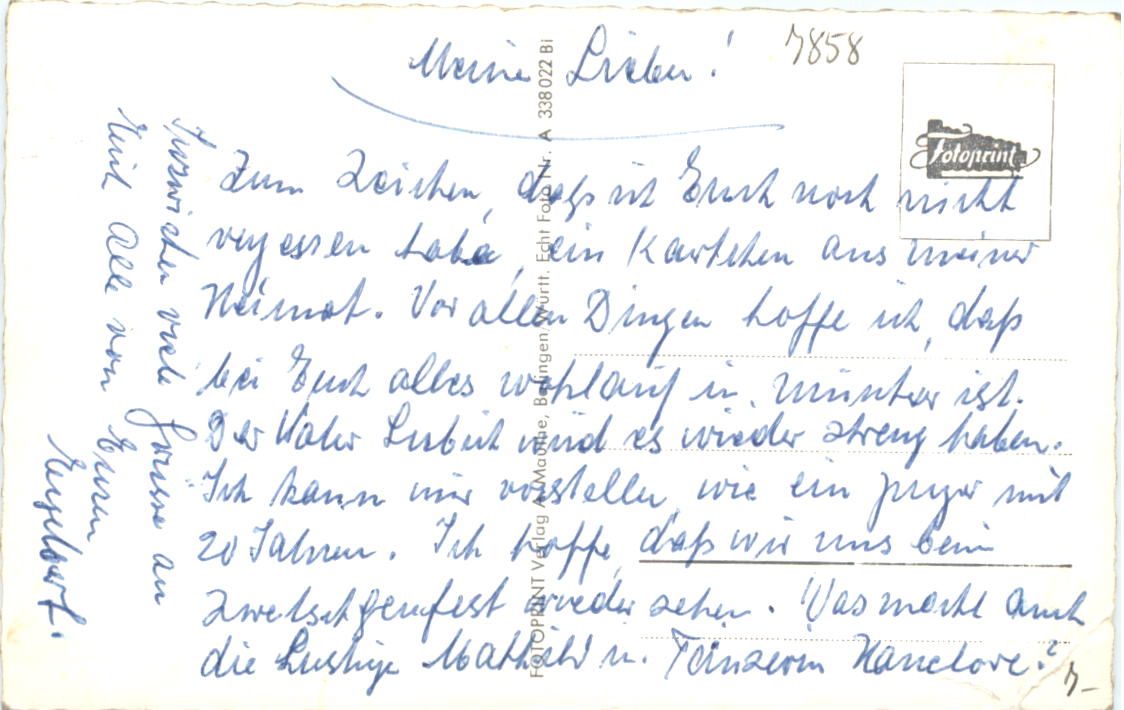 Meine Lieben!
7858
Fotoprint
Zum Zeichen, daß ich Euch noch nicht
vergessen habe, ein Kärtchen aus meiner
Heimat. Vor allen Dingen hoffe ich, daß
bei Euch alles wohlauf u. munter ist.
Der Vater wird es wieder streng haben.
Ich kann mir vorstellen, wie ein junger mit
20 Jahren. Ich hoffe, daß wir uns beim
Zwetschgenfest wieder sehen. Was macht auch
die Lustige Mathild u. Tänzerin Hanelore?
Inzwischen viele Grüsse an
Euch Alle von Euren
Engelbert.
FOTOPRINT Verlag A. Mauthe, Balingen/Württ. Echt Foto Nr. A 338022 Bi